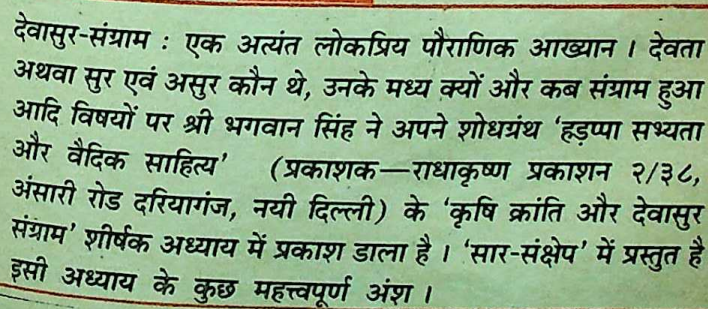 देवासुर-संग्राम : एक अत्यंत लोकप्रिय पौराणिक आख्यान । देवता
अथवा सुर एवं असुर कौन थे, उनके मध्य क्यों और कब संग्राम हुआ
आदि विषयों पर श्री भगवान सिंह ने अपने शोधग्रंथ 'हड़प्पा सभ्यता
और वैदिक साहित्य' (प्रकाशक—राधाकृष्ण प्रकाशन २/३८,
अंसारी रोड दरियागंज, नयी दिल्ली) के 'कृषि क्रांति और देवासुर
संग्राम' शीर्षक अध्याय में प्रकाश डाला है । 'सार-संक्षेप' में प्रस्तुत है
इसी अध्याय के कुछ महत्त्वपूर्ण अंश ।